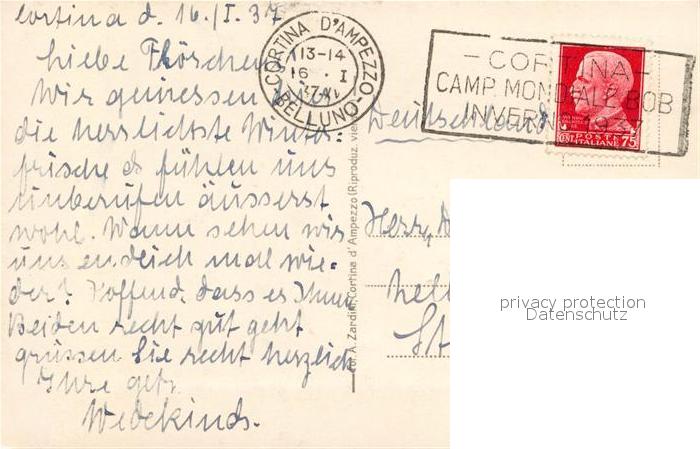 Cortina d. 16./I. 37
Liebe Flöschens
Wir geniessen hier
die herrlichste Winter-
frische & fühlen uns
unberufen äusserst
wohl. Wann sehen wir
uns endlich mal wie-
der? Hoffend, dass es Ihnen
Beiden recht gut geht
grüssen Sie recht herzlich
Ihre getr.
Wedekinds.
CORTINA D'AMPEZZO
13-14
16 · I
BELLUNO
- CORTINA -
CAMP. MONDIALE BOB
INVER
POSTE
ITALIANE 75
Deutschland
Herrn
Fot. A. Zardini, Cortina d'Ampezzo (Riproduz. vie
privacy protection
Datenschutz